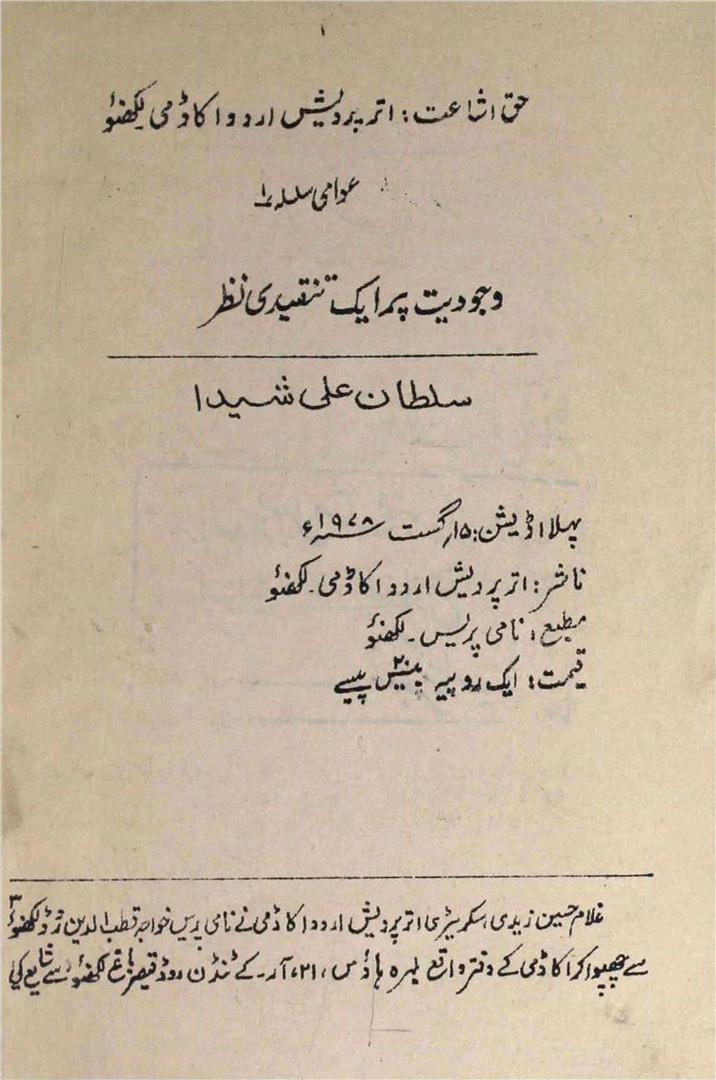 ۱
حق اشاعت: اتر پردیش اردو اکاڈمی لکھنؤ
عوامی سلسلہ ۱
وجودیت پر ایک تنقیدی نظر
سلطان علی شیدا
پہلا اڈیشن: ۱۵ اگست ۱۹۷۸ء
ناشر: اتر پردیش اردو اکاڈمی۔ لکھنؤ
مطبع: نامی پریس۔ لکھنؤ
قیمت: ایک روپیہ ۲۰ پیسے
غلام حسین زیدی، سکریٹری اتر پردیش اردو اکاڈمی نے نامی پریس خواجہ قطب الدین روڈ لکھنؤ ۳
سے چھپوا کر اکاڈمی کے دفتر واقع لہرہ ہاؤس، ۲۱، آر۔ کے ٹنڈن روڈ قیصر باغ لکھنؤ سے شایع کی